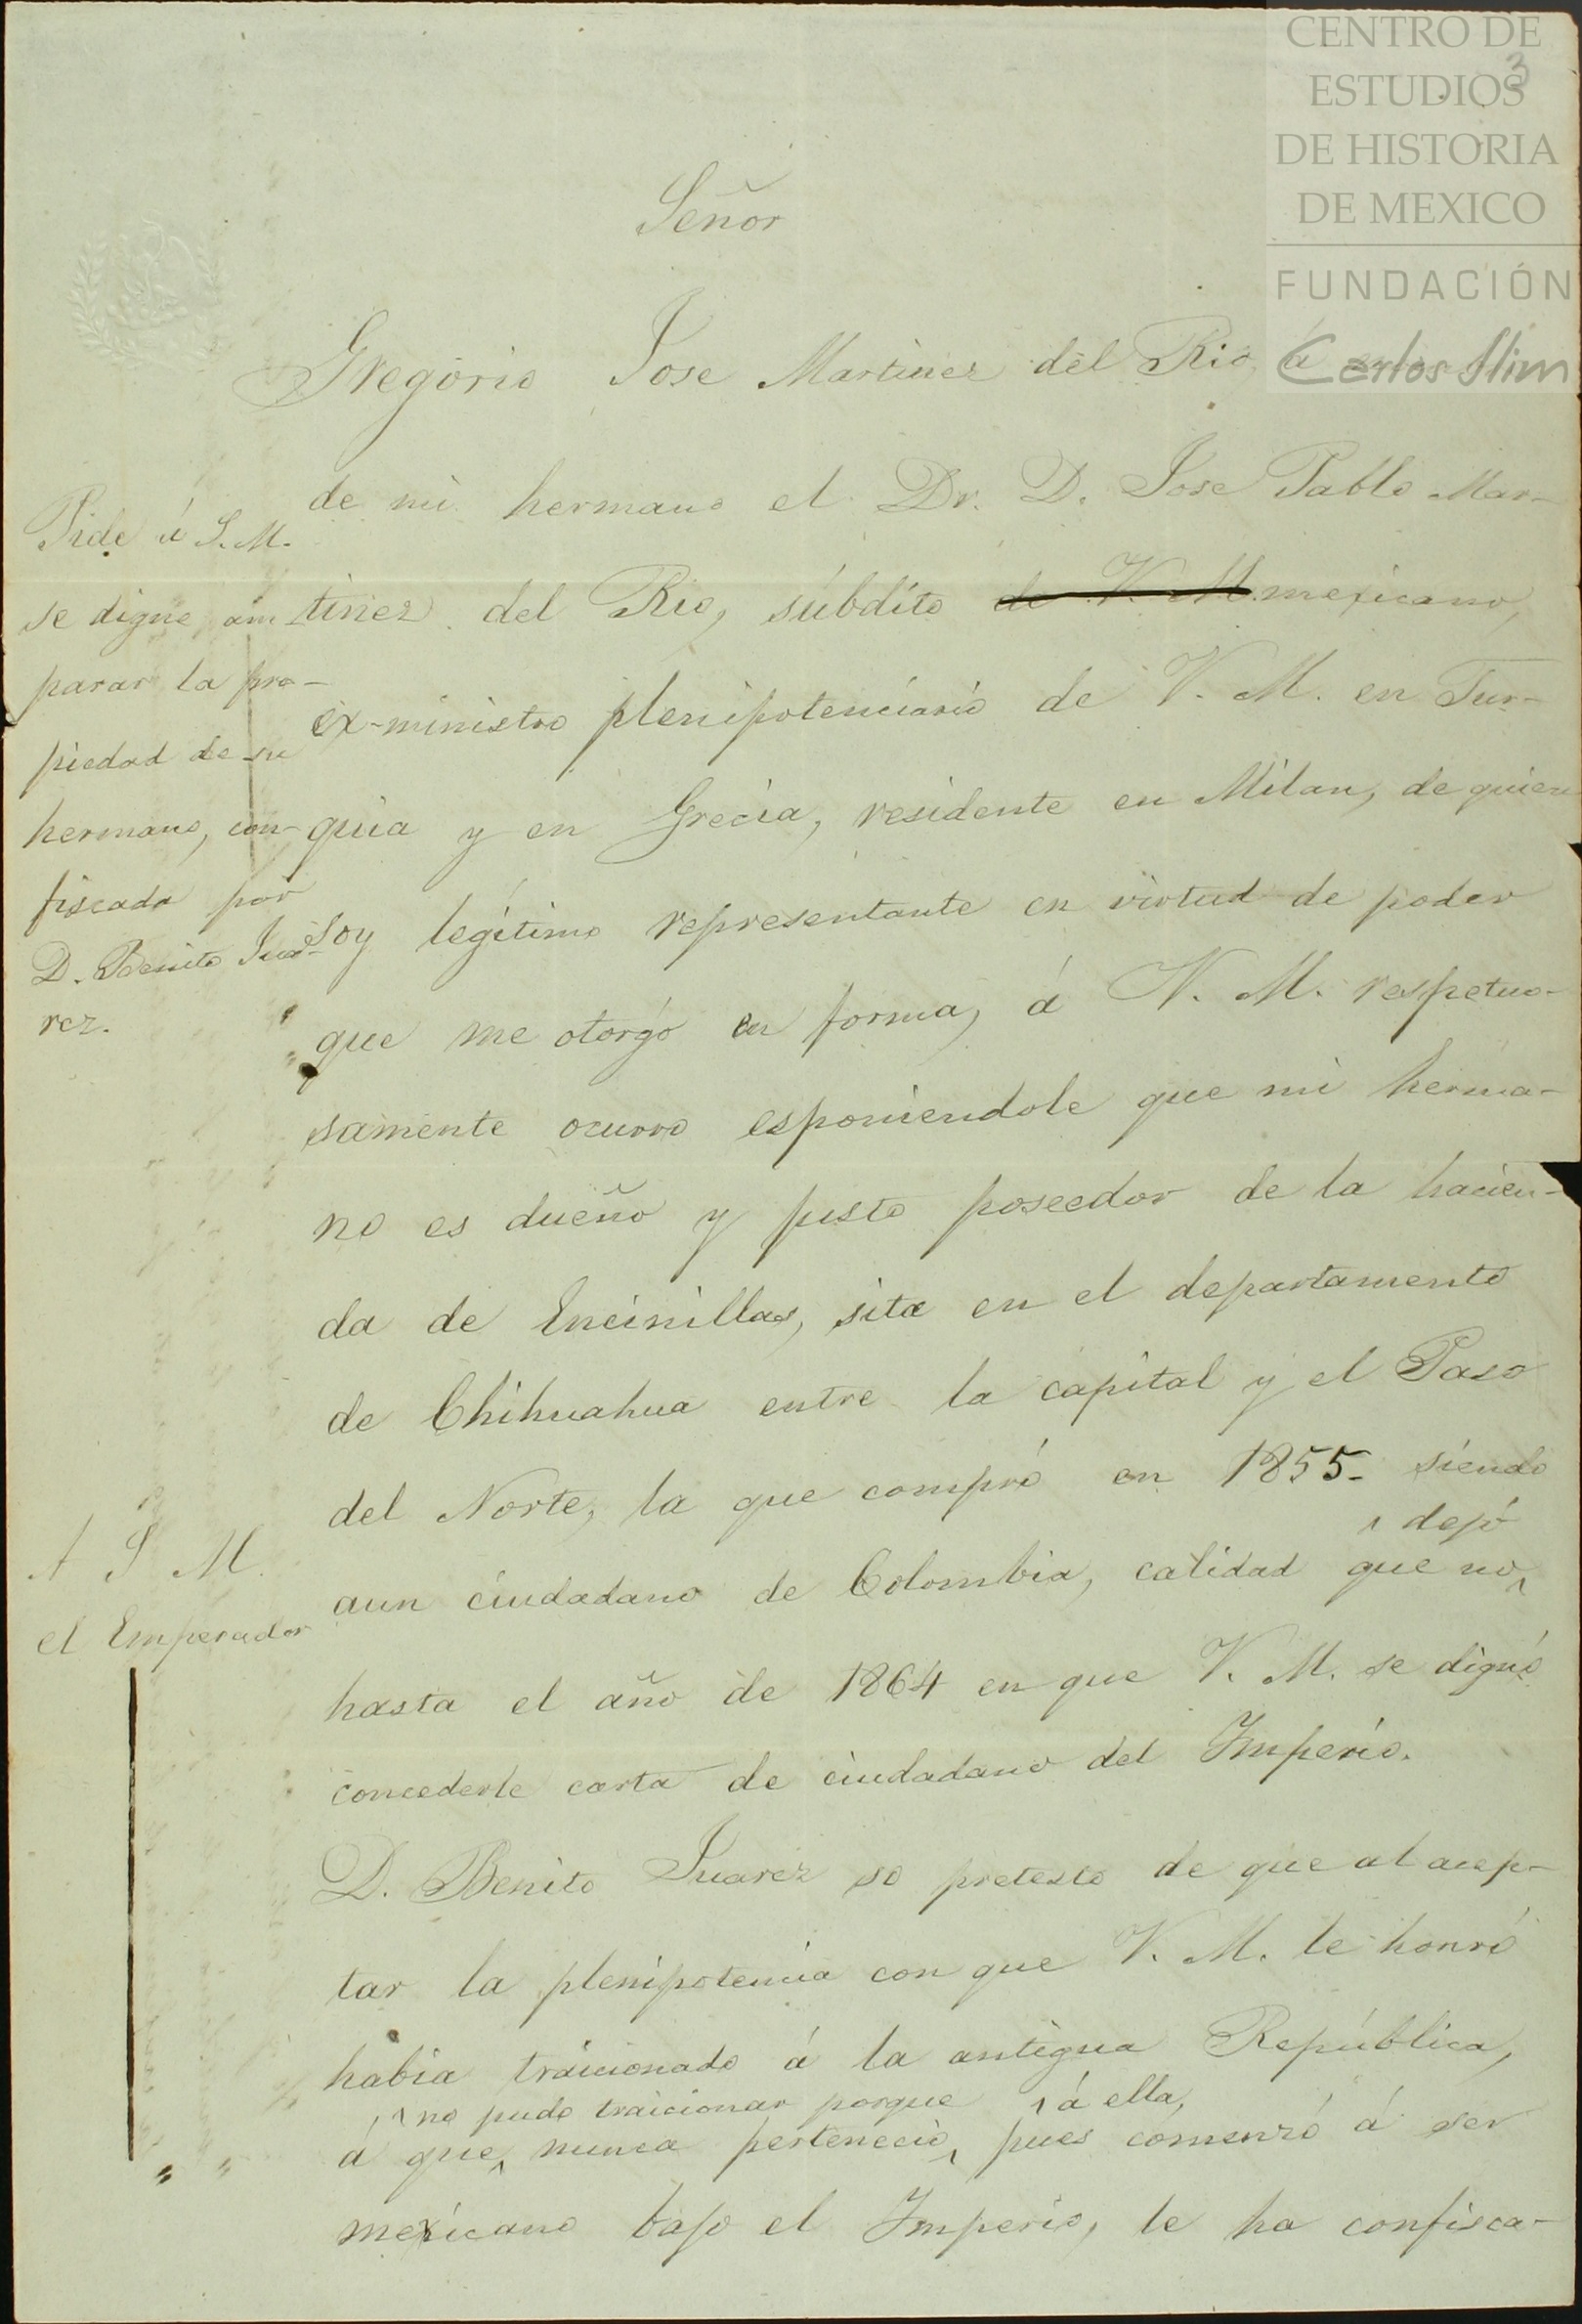 CENTRO DE
ESTUDIOS
DE HISTORIA
DE MEXICO
FUNDACIÓN
Carlos Slim
3
Señor
Gregorio Jose Martinez del Rio, á
de mi hermano el Dr. D. Jose Pablo Mar-
tinez del Rio, súbdito de V. M. mexicano,
ex-ministro plenipotenciario de V. M. en Tur-
quia y en Grecia, residente en Milan, de quien
soy legítimo representante en virtud de poder
que me otorgó en forma, á V. M. respetuo-
samente ocurro esponiendole que mi herma-
no es dueño y justo poseedor de la hacien-
da de Encinillas, sita en el departamento
de Chihuahua entre la capital y el Paso
del Norte, la que compró en 1855- siendo
aun ciudadano de Colombia, calidad que no
dejó
hasta el año de 1864 en que V. M. se dignó
concederle carta de ciudadano del Imperio.
D. Benito Juarez so pretesto de que al acep-
tar la plenipotencia con que V. M. le honró
habia traicionado á la antigua República,
no pudo traicionar porque á ella,
á que nunca perteneció, pues comenzó á ser
mexicano bajo el Imperio, le ha confisca-
Pide á S. M.
se digne am
parar la pro-
piedad de su
hermano, con-
fiscada por
D. Benito Jua-
rez.
A S M.
el Emperador